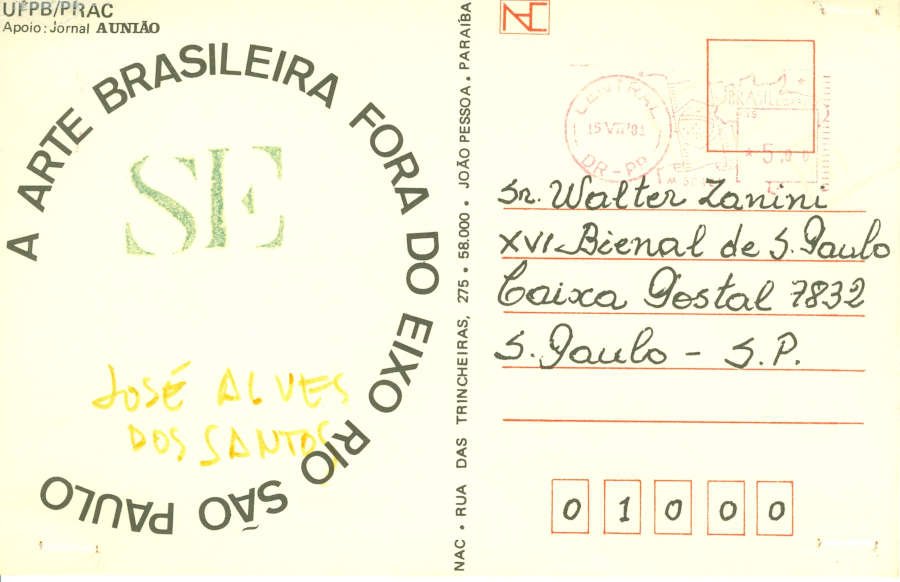 UFPB/PRAC
Apoio: Jornal A UNIÃO
A ARTE BRASILEIRA FORA DO EIXO RIO SÃO PAULO
SE
JOSÉ ALVES
DOS SANTOS
NAC • RUA DAS TRINCHEIRAS, 275 • 58.000 • JOÃO PESSOA • PARAÍBA
CENTRAL
DR-PB
BRASIL
Sr. Walter Zanini
XVI-Bienal de S. Paulo
Caixa Postal 7832
S. Paulo - S.P.
0 1 0 0 0